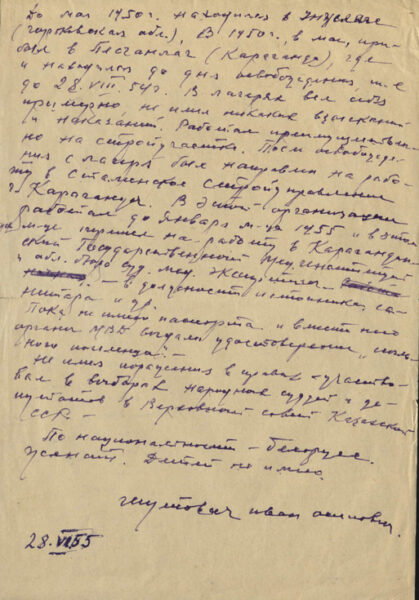 До мая 1950г. находился в
(Горьковская обл.), В 1950г., в мае, при-
был в Песчанлаг (Караганда), где
и находился до дня освобождения, т.е
до 28.VIII.54г. В лагерях вел себя
примерно не имел никаких взысканий
и наказаний. Работал преимуществен-
но на стройучастке. После освобожде-
ния с лагеря был направлен на рабо-
ту в Сталинское стройуправление
г. Караганды. В этой организации
работал до января м-ца 1955 и в этом
м-це перешел на работу в Карагандин-
ский Государственный Мединститут
и обл. бюро суд. мед. экспертизы
– в должности истопника, са-
нитара и др.
Пока не имею паспорта и вместо него
органы МВД выдали удостоверение
ного поселенца. –
Не имел поражения в правах – участво-
вал в выборах народных судей и де-
путатов в Верховный совет Казахской
ССР. –
По национальности – белорус.
Женат. Детей не имею.
Иван Осипович.
28.VI.55